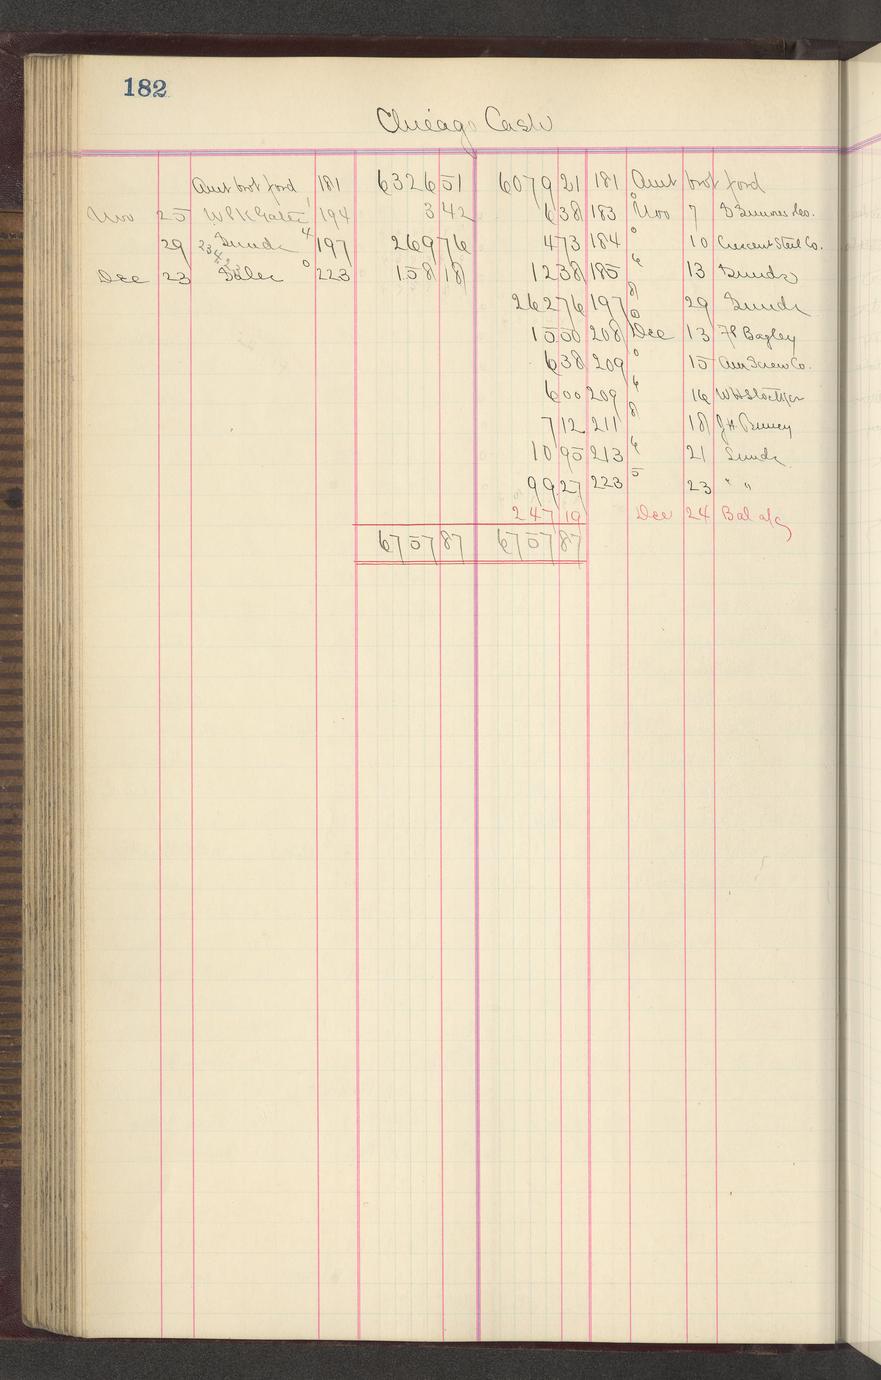 182
Chicago Cash
Amt brot ford 181 6326 51 6079 21 181 Amt brot ford
Nov 25 W P K 194 3 42 6 38 183 Nov 7 Co.
29 234 Sunds 4 197 269 76 4 73 184 10 Crescent Steel Co.
Dec 23 Sales 0 223 158 18 12 38 185 13 Sunds
262 76 197 29 Sunds
15 50 208 Dec 13 F P Bagley
6 38 209 15 Am Screw Co.
6 00 209 16 W H
7 12 211 18 J H
10 95 213 21 Sunds
99 27 223 23 " "
247 19 Dec 24 Bal a/c
6757 87 6757 87